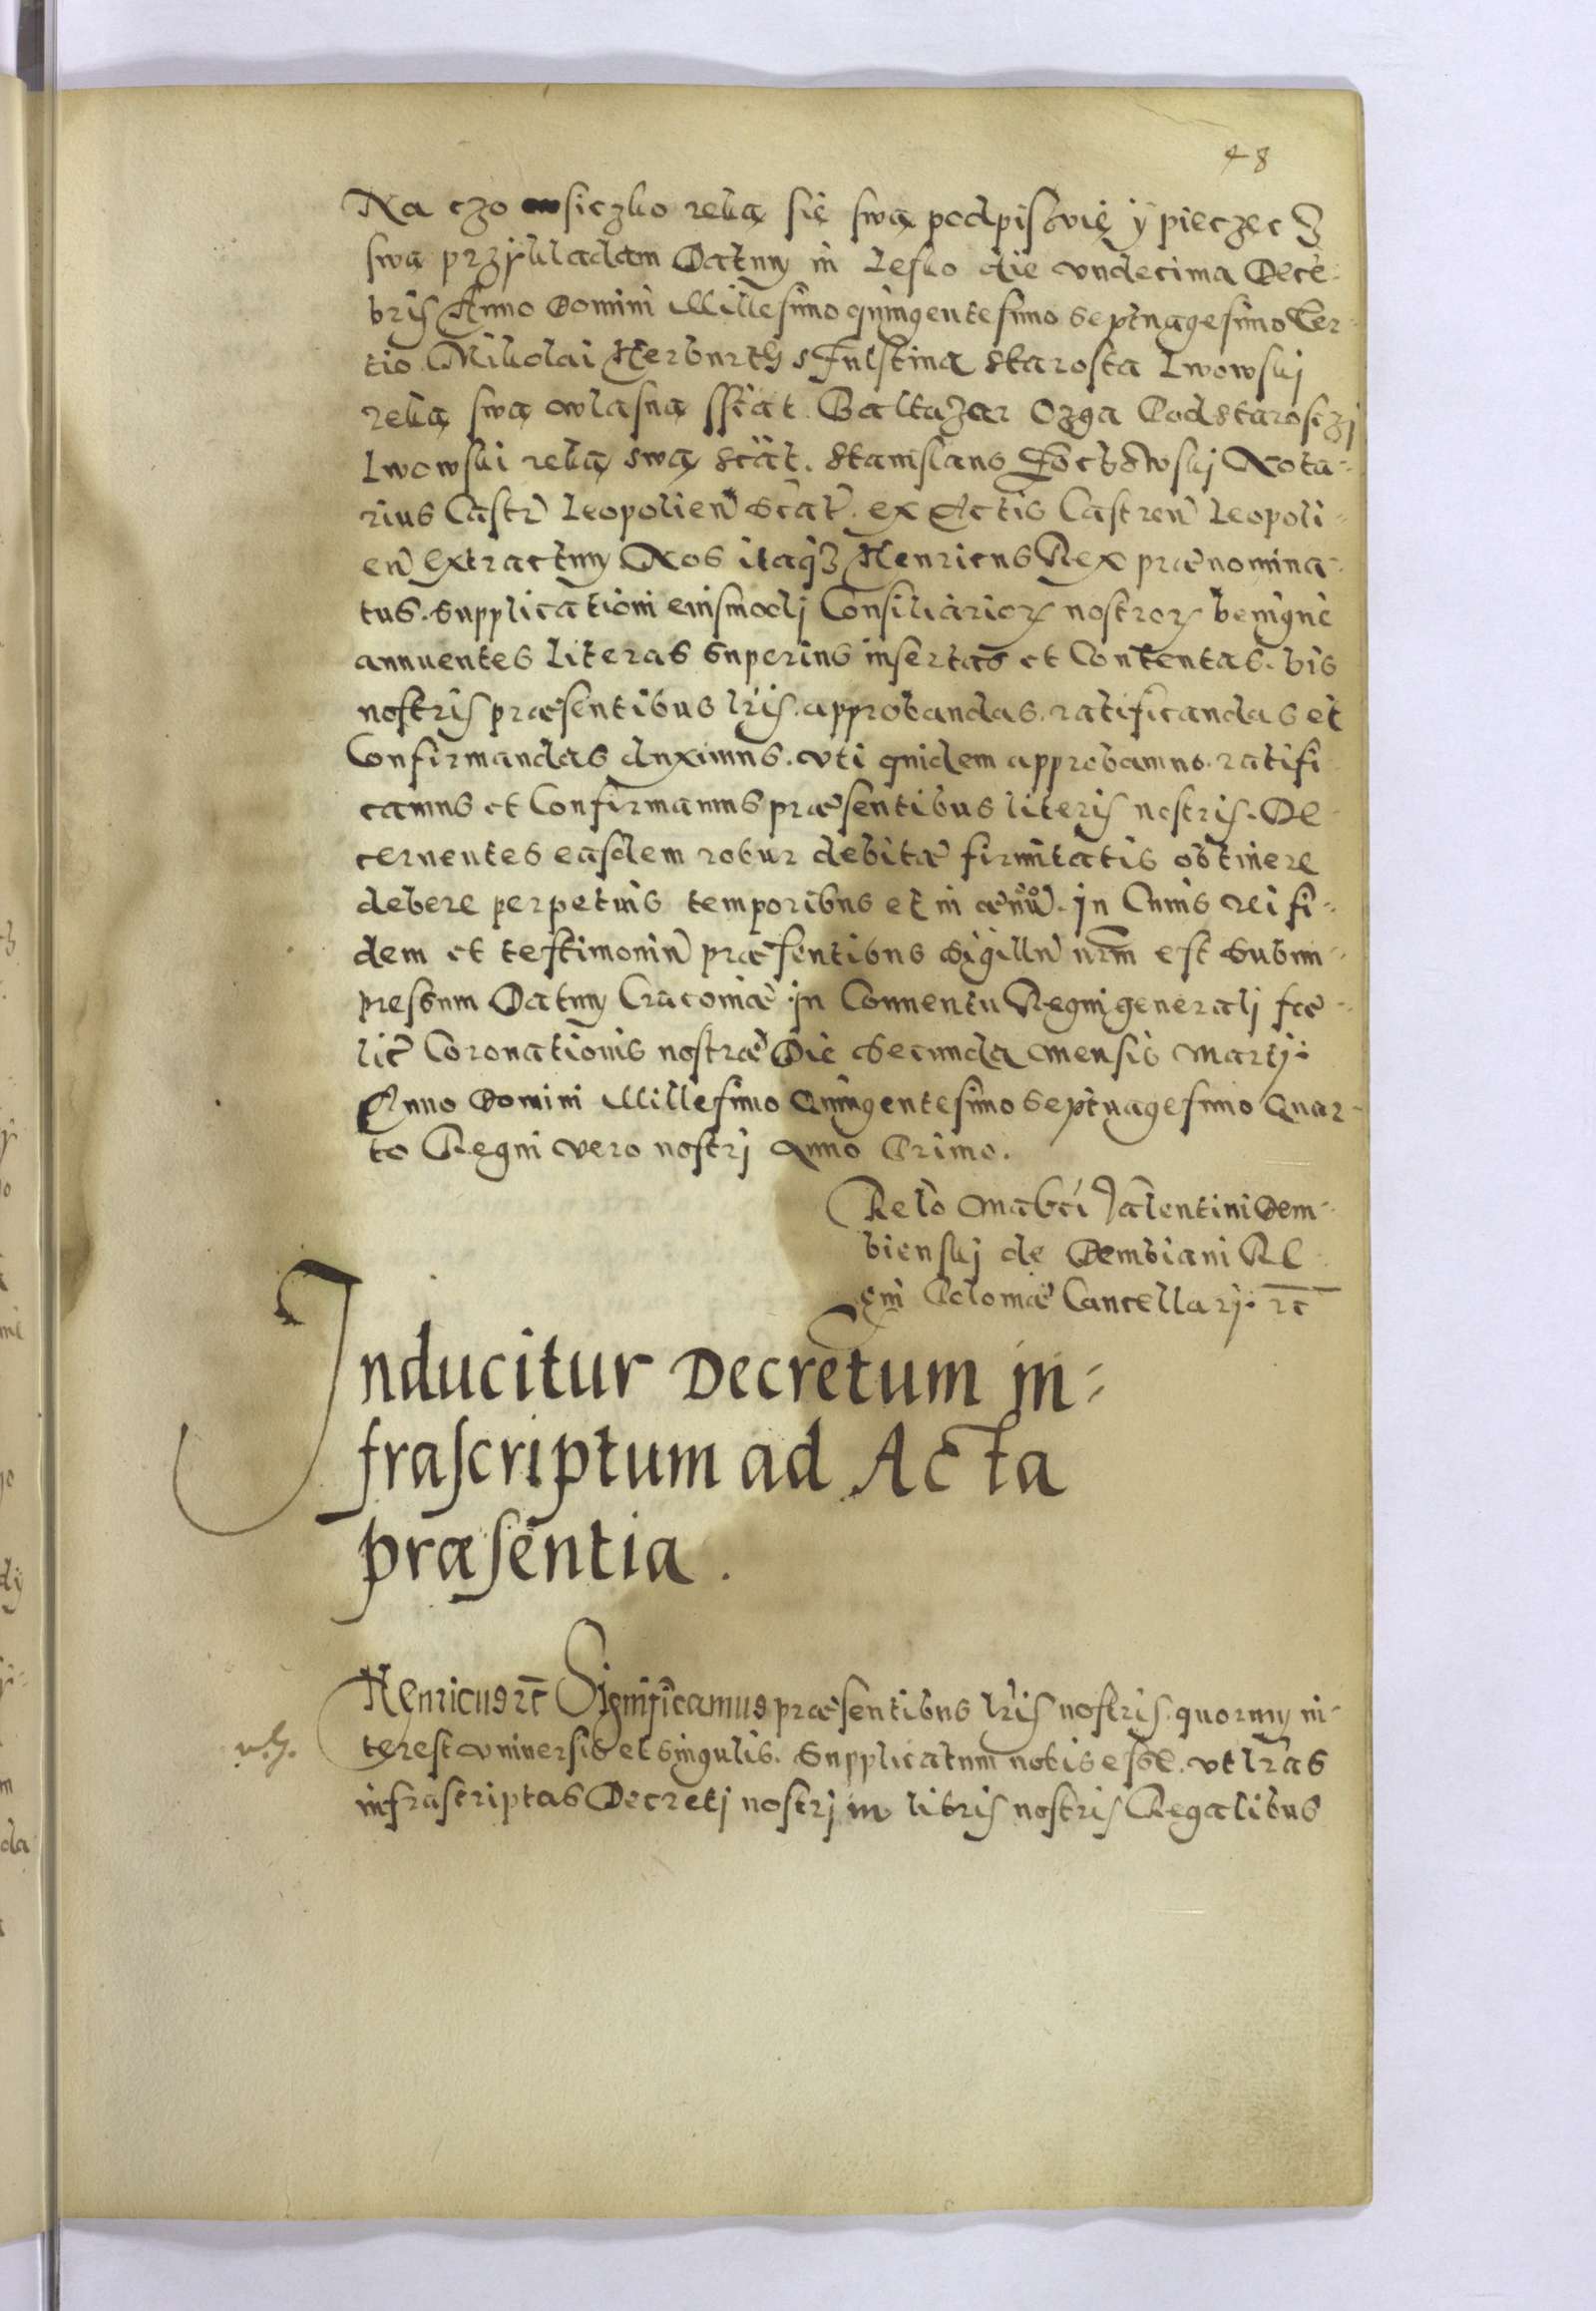 48
Na czo wsiczko reką się swą podpisuię ÿ pieczęcz
swą przÿkladam Datum in Lesko die vndecima Decē-
bris Anno Domini Millesimo quingentesimo septuagesimo Ter-
tio Mikolai Herburth s Fulstina starosta Lwowskj
reką swą wlasną sst. Baltazar Ozga Podstarosczj
Lwowski reką swą sst. Stanislaus Nota-
rius Castr Leopolien sst. ex Actis Castren Leopoli-
en extractum Nos itaq3 Henricus Rex prænomina-
tus. Supplicationi eiusmodj Consiliarior nostror benignè
annuentes literas superius insertas et Contentas. his
nostris præsentibus lris. approbandas. ratificandas et
Confirmandas duximus. vti quidem approbamus. ratifi
camus et Confirmamus præsentibus literis nostris. De-
cernentes easdem robur debitæ firmitatis obtinere
debere perpetuis temporibus et in æuū. in Cuius rei fi-
dem et testimoniū præsentibus sigillū nrm est subim-
pressum Datum Cracouiæ in Conuentu Regni generalj fæ-
lic Coronationis nostræ Die secunda mensis Martij.
Anno Domini Millesimo Quingentesimo septuagesimo Quar-
to Regni vero nostrj Anno Primo.
Relo Mahci Valentini Dem-
bienskj de Dembiani R
gni Poloniæ Cancellarij. rc
Inducitur Decretum in-
frascriptum ad Acta
præsentia.
Henricus rc Significamus præsentibus lris nostris. quorum in-
terest vniuersis et singulis. Supplicatum nobis esse. vt lras
infrascriptas Decretj nostrj in libris nostris Regalibus